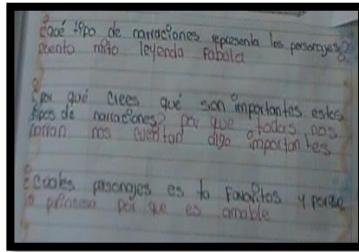 ¿Qué tipo de narraciones representa los personajes?
cuento mito leyenda Fabula
¿por qué crees qué son importantes estos
tipos de narraciones? por que todas nos
narran nos cuentan algo importantes
¿cuales personajes es tu Favoritos y porque
la princesa por que es amable